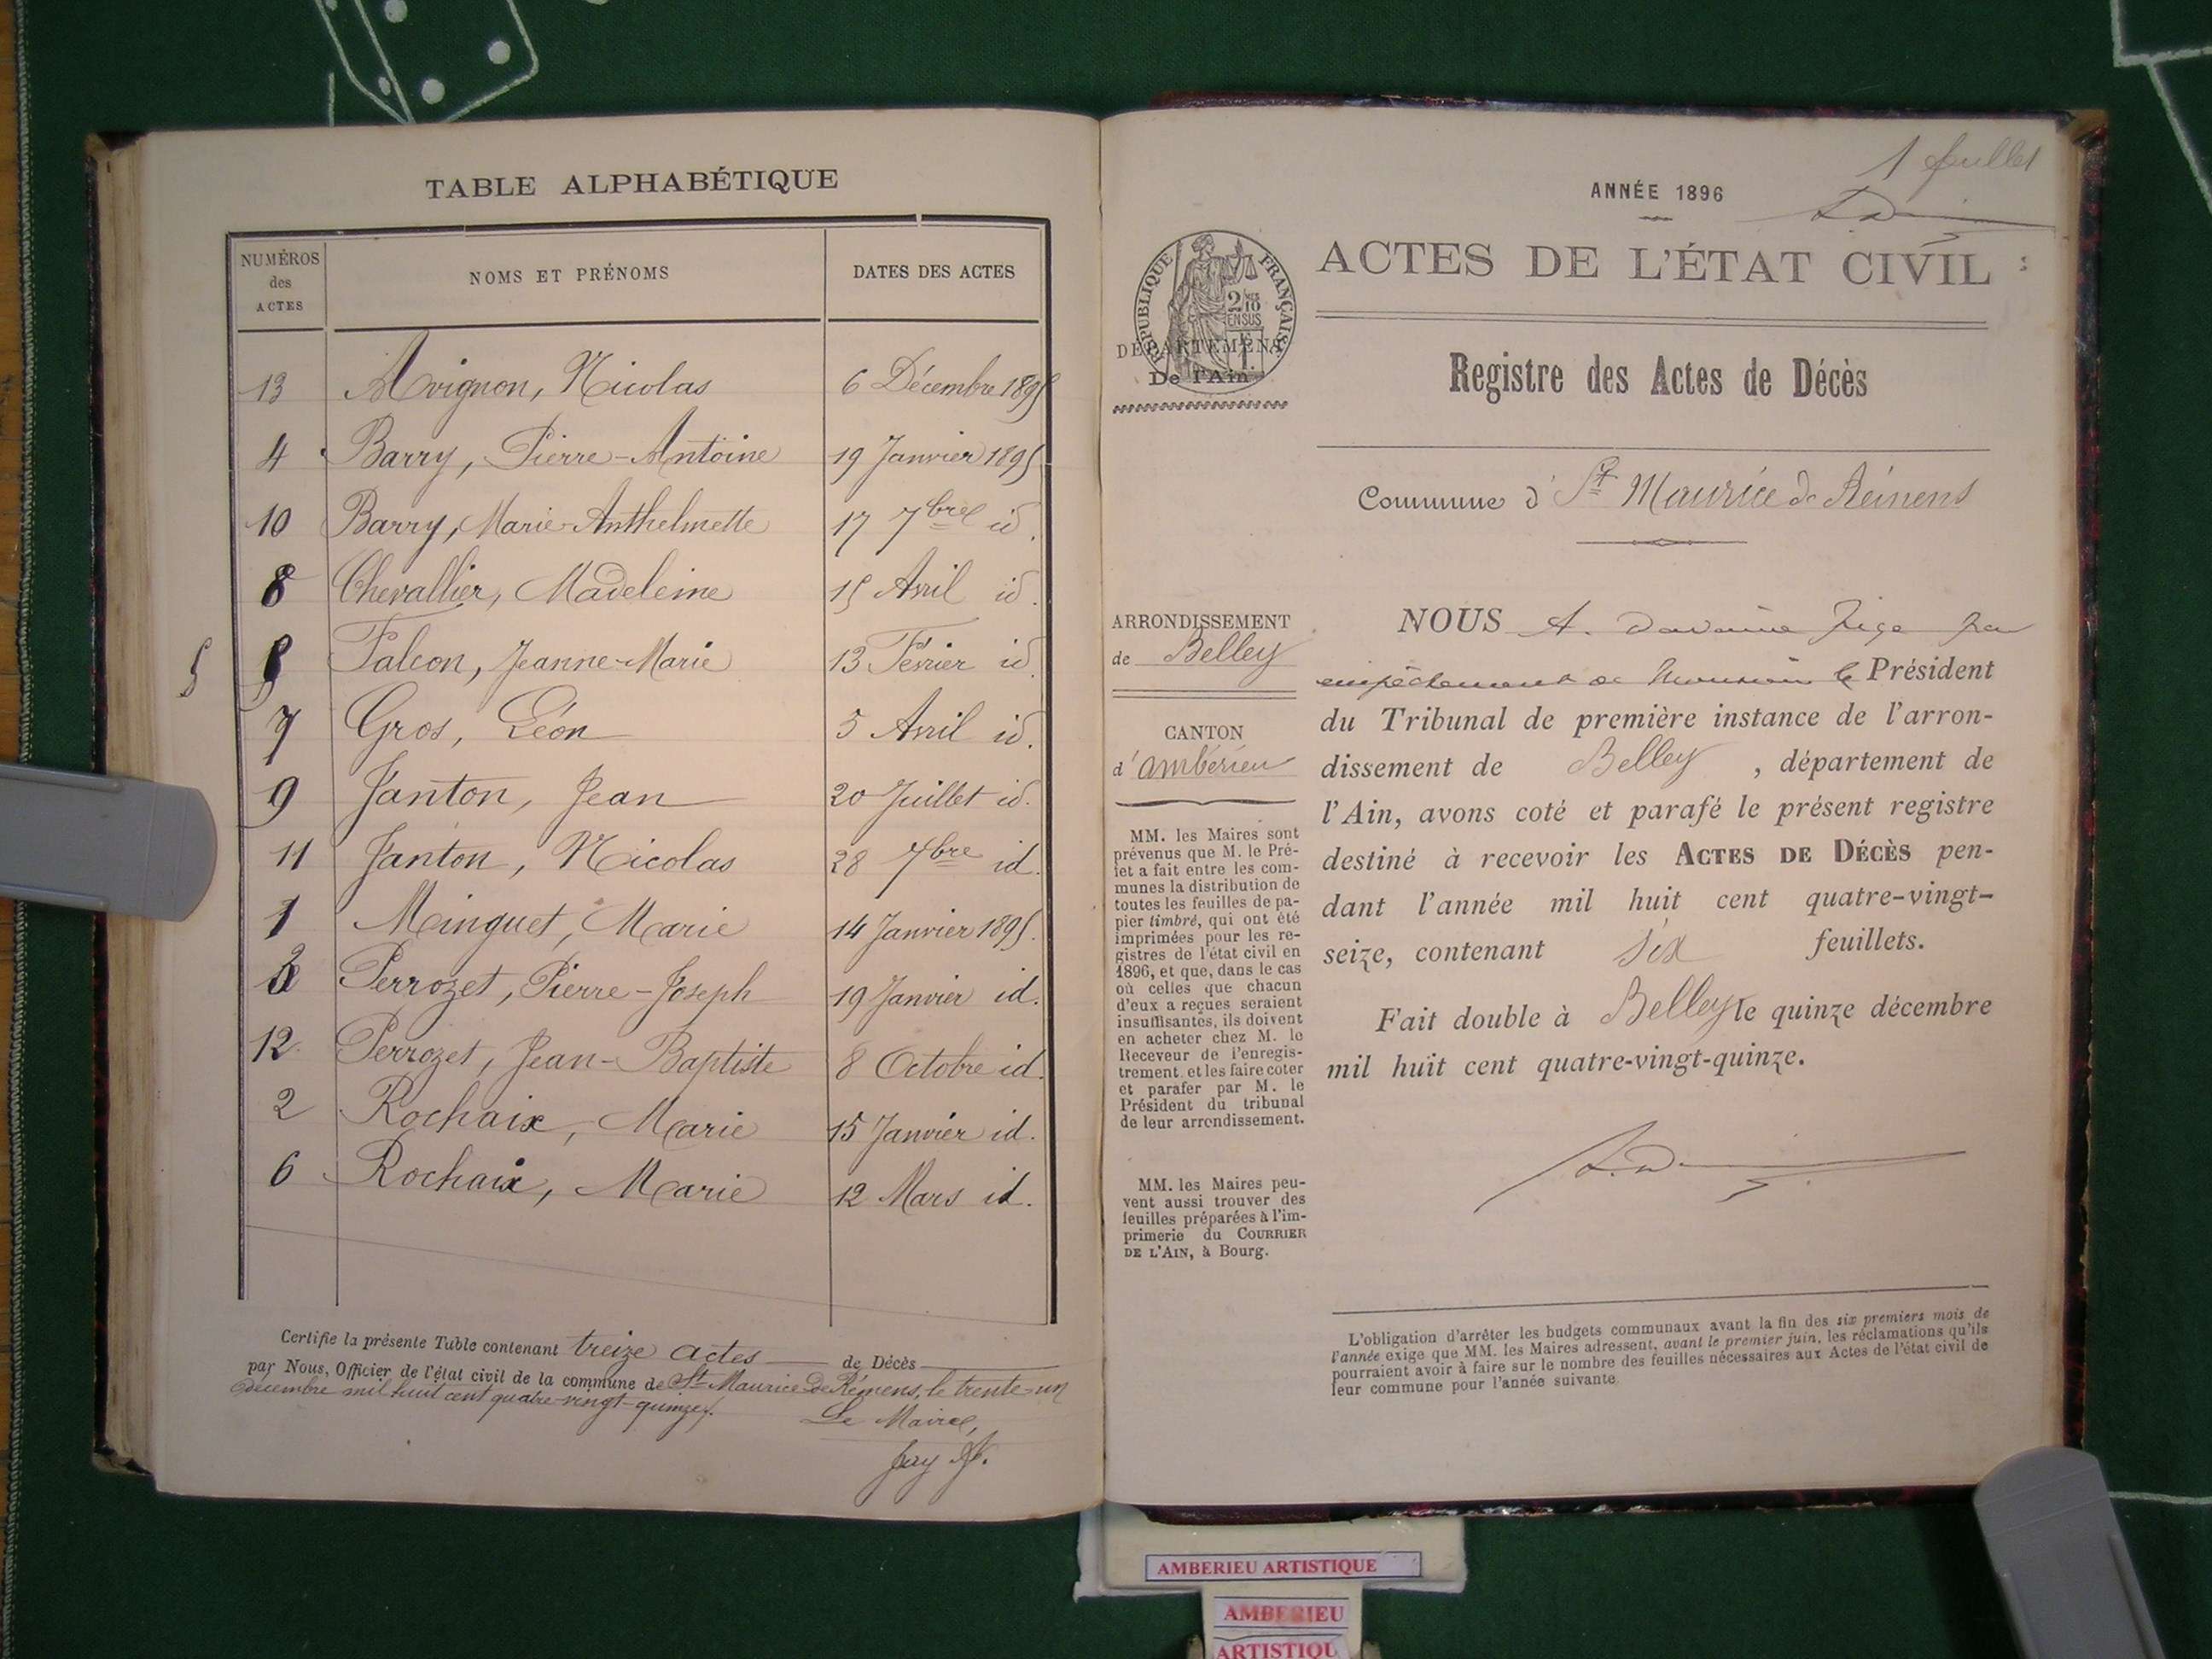 TABLE ALPHABÉTIQUE
NUMÉROS des ACTES NOMS ET PRÉNOMS DATES DES ACTES
13 Avignon, Nicolas 6 Décembre 1895
4 Barry, Pierre-Antoine 19 Janvier 1895
10 Barry, Marie-Anthelmette 17 7bre id.
8 Chevallier, Madeleine 15 Avril id.
5 5 Falcon, Jeanne-Marie 13 Février id
7 Gros, Léon 5 Avril id.
9 Janton, Jean 20 Juillet id.
11 Janton, Nicolas 28 7bre id.
1 Minguet, Marie 14 Janvier 1895.
3 Perrozet, Pierre-Joseph 19 Janvier id.
12. Perrozet, Jean-Baptiste 8 Octobre id.
2 Rochaix, Marie 15 Janvier id.
6 Rochaix, Marie 12 Mars id.
Certifie la présente Table contenant treize actes de Décès
par Nous, Officier de l'état civil de la commune de St Maurice de Rémens, le trente-un
décembre mil huit cent quatre-vingt-quinze.
Le Maire,
Jay
1 feuillet
ANNÉE 1896
ACTES DE L'ÉTAT CIVIL :
RÉPUBLIQUE FRANÇAISE
2/10
EN SUS
DÉPARTEMENT
De l'Ain
Registre des Actes de Décès
Commune d' St Maurice de Réinens
ARRONDISSEMENT
de Belley
CANTON
d'Ambérieu
MM. les Maires sont
prévenus que M. le Pré-
fet a fait entre les com-
munes la distribution de
toutes les feuilles de pa-
pier timbré, qui ont été
imprimées pour les re-
gistres de l'état civil en
1896, et que, dans le cas
où celles que chacun
d'eux a reçues seraient
insuffisantes, ils doivent
en acheter chez M. le
Receveur de l'enregis-
trement et les faire coter
et parafer par M. le
Président du tribunal
de leur arrondissement.
MM. les Maires peu-
vent aussi trouver des
feuilles préparées à l'im-
primerie du COURRIER
DE L'AIN, à Bourg.
NOUS A. Juge par
empêchement de Monsieur le Président
du Tribunal de première instance de l'arron-
dissement de Belley, département de
l'Ain, avons coté et parafé le présent registre
destiné à recevoir les ACTES DE DÉCÈS pen-
dant l'année mil huit cent quatre-vingt-
seize, contenant six feuillets.
Fait double à Belley le quinze décembre
mil huit cent quatre-vingt-quinze.
L'obligation d'arrêter les budgets communaux avant la fin des six premiers mois de
l'année exige que MM. les Maires adressent, avant le premier juin, les réclamations qu'ils
pourraient avoir à faire sur le nombre des feuilles nécessaires aux Actes de l'état civil de
leur commune pour l'année suivante.
AMBERIEU ARTISTIQUE
AMBERIEU
ARTISTIQU